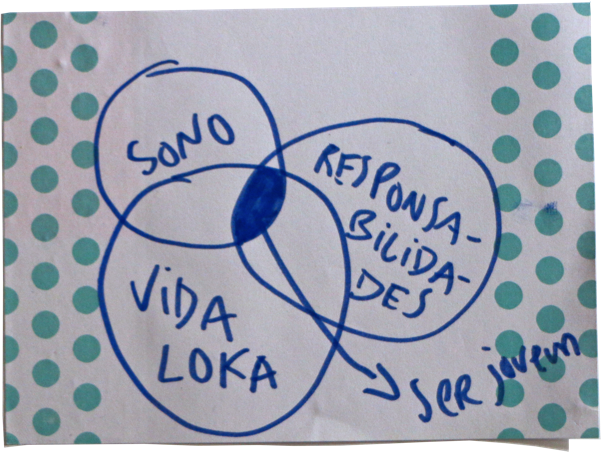 SONO
RESPONSA-
BILIDA-
DES
VIDA
LOKA
SER jovem